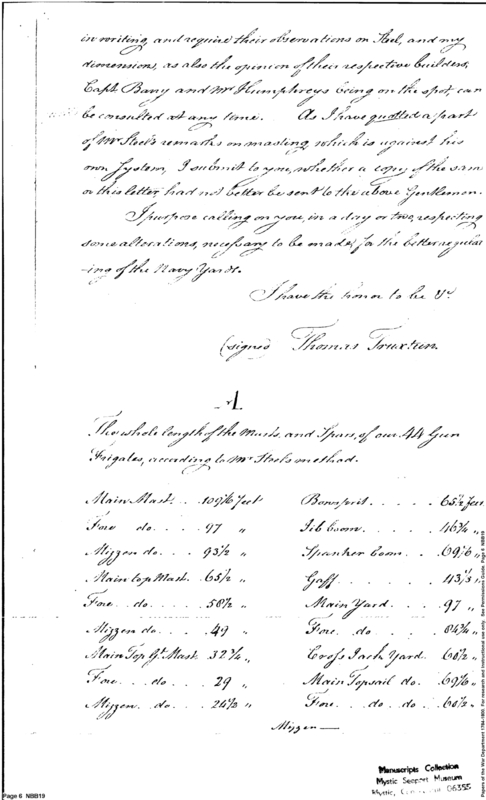 in writing, and require their observations on Steel, and my
dimensions, as also the opinion of their respective builders,
Capt. Barry and Mr Humphreys being on the spot, can
be consulted at any time. As I have quotted a part
of Mr Steel's remarks on masting, which is against his
own System, I submit to you, whether a copy of the same
or this letter, had not better be sent to the above Gentlemen.
I purpose calling on you, in a day or two, respecting
some alterations, necessary to be made, for the better regulat
-ing of the Navy Yard.
I have the honor to be &c.
(signed) Thomas Truxtun
A
The whole length of the Masts, and Spars, of our 44 Gun
Frigates, according to Mr Steel's method.
Main Mast . . 109 6/10 feet Bowsprit . . . . . 65 1/2 feet
Fore do. . . . 97 " Jib boom . . . . . 46 3/4 "
Mizzen do. . . . 93 1/2 " Spanker boom . . 69 6/10 "
Main top Mast . 65 1/2 " Gaff . . . . . . 43 1/3 "
Fore . . do . . . 58 1/2 " Main Yard . . . 97 "
Mizzen do . . . . 49 " Fore . . do . . . . 84 3/4 "
Main Top Gt. Mast 32 3/4 " Cross Jack Yard . 60 1/2 "
Fore . . . do . . . 29 " Main Topsail do. . 69 6/10 "
Mizzen . . do . . . 24 1/2 " Fore . . do . do . . 60 1/2 "
Mizzen
Manuscripts Collection
Mystic Seaport Museum
Mystic, Connecticut 06355
Page 6 NBB19
Papers of the War Department 1784-1800. For research and instructional use only. See Permissions Guide. Page 6 NBB19